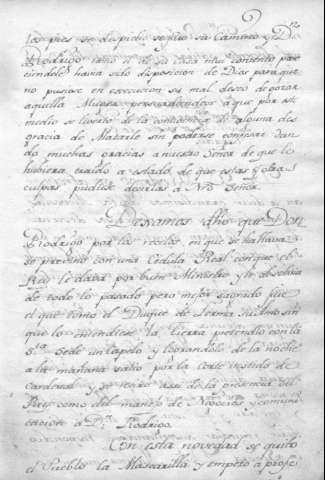 los pies se despidio siguio su Camino y Dn
Rodrigo tomo el de su casa muy contento pare
ciendole havia sido disposicion de Dios para que
no pusiese en execucion su mal deseo de gozar
aquella Muger persuadiendose a que por este
medio se libertó de la contingencia de alguna des
gracia de Matarle sin poderse confesar dan
do muchas gracias a nuestro Señor de que lo
hubiera traido a estado de que estas y otras
culpas pudiese decirlas a Ntro Señor.
Dejamos dho que Don
Rodrigo por los recelos en que se hallava
se previno con una Cedula Real con que el
Rey le dava por buen Ministro y le absolvia
de todo lo pasado pero mejor sagrado fue
el que tomo el Duque de Lerma su Amo sin
que lo entendiese la tierra pretendio con la
Sta Sede un Capelo y lograndolo de la noche
a la mañana salio por la corte vestido de
Cardenal y se retiro assi de la presencia del
Rey como del manejo de Negocios y comuni
cacion a Dn Rodrigo.
Con esta novedad se quitó
el Pueblo la Mascarilla y empezó a profe